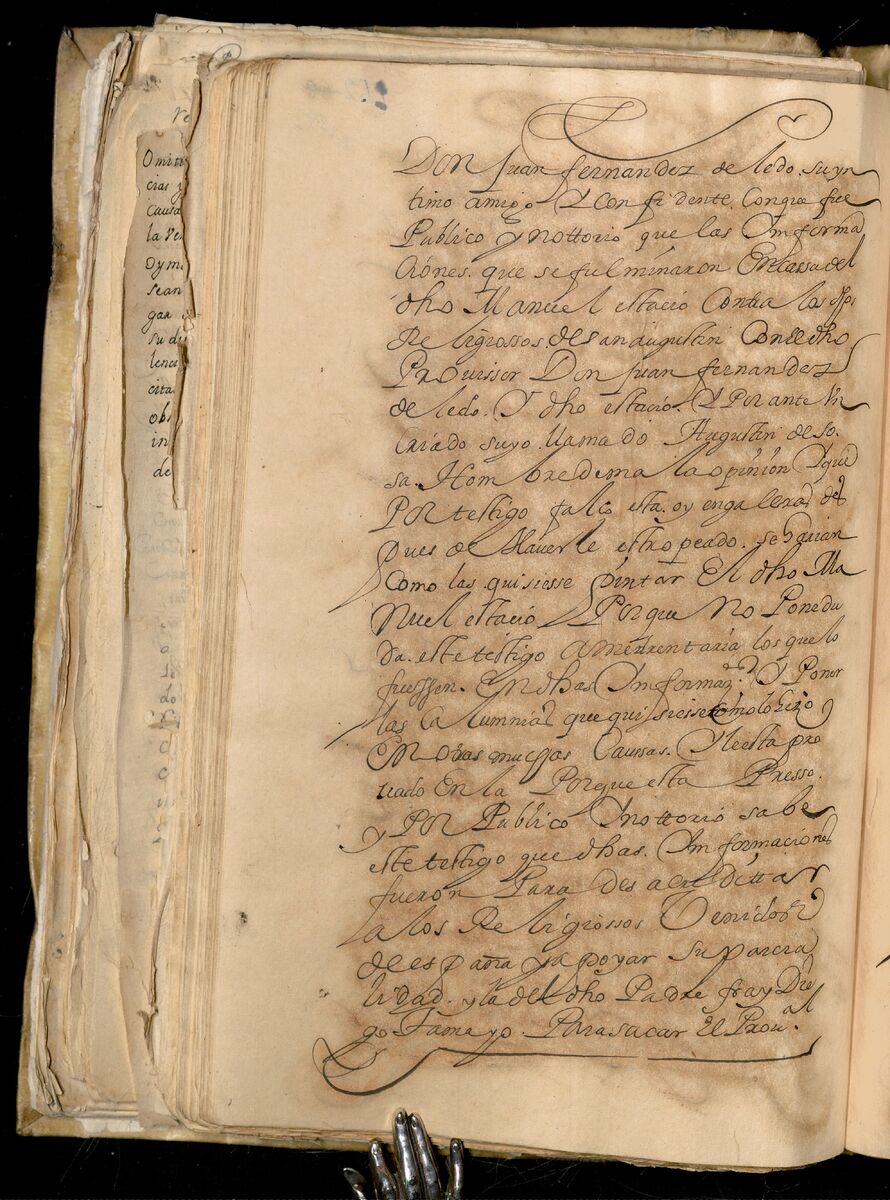 Omiti
cias y
causa
la Ve
oy m
sean
gar
su di
lenci
cita
obs
in
de
Don Juan fernandez de ledo. su yn
timo amigo Y Confidente. Conque fue
Publico y Nottorio que las Informa
ciones. que se fulminaron En cassa del
dho Manuel estacio Contra los dhos
Religiossos. de san augustin Con el dho
Prouissor Don Juan fernandez
de ledo. Y dho estacio. Y Por ante Vn
Criado suyo llamado Augustin de so
sa. Hombre de mala opinion Y que
Por testigo falço esta. oy en galeras des
pues de Hauerle estropeado. se harian
Como las quisiesse pintar El dho Ma
nuel estacio Porque No Pone du
da. este testigo amedrentaria los que lo
fuessen. En dhas Informaz.s Y Poner
las Calumnias que quisiesse Como lo hizo
En otras muchas Caussas. Y le esta pro
uado En la Porque esta Presso.
y Por Publico Y nottorio saue
este testigo que dhas. Informaciones
fueron Para desacreditar
a los Religiossos Venidos
de españa y apoyar su parcia
lidad. y la del dho Padre fray Die
go Tamayo. Para sacar El Prou.al